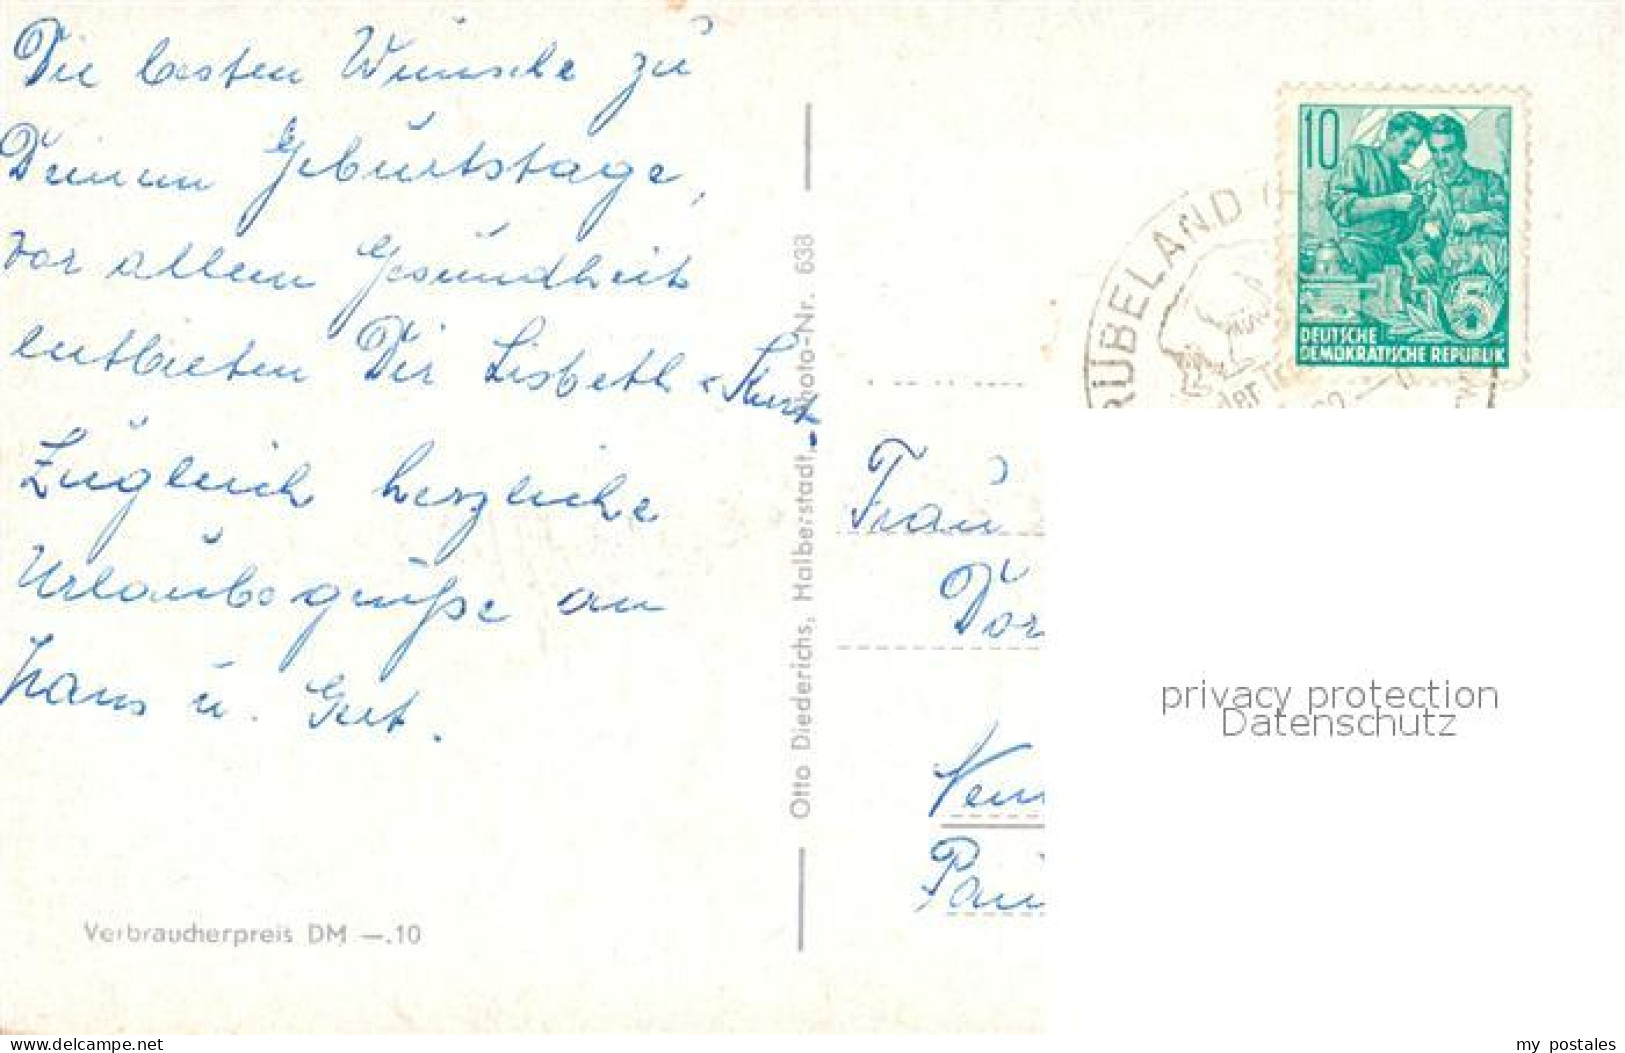 Die besten Wünsche zu
Deinem Geburtstage,
vor allem Gesundheit
entbieten Dir Lisbeth + Kurt
Zugleich herzliche
Urlaubsgrüße an
Hans u. Gert.
Verbraucherpreis DM —.10
Otto Diederichs, Halberstadt, Photo-Nr. 638
RÜBELAND
der
10
5
DEUTSCHE
DEMOKRATISCHE REPUBLIK
Frau
Dor
privacy protection
Datenschutz
delcampe.net
my_postales